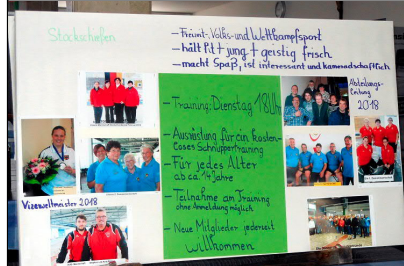 Stockschießen
- Freizeit-, Volks- und Wettkampfsport
- hält fit + jung + geistig frisch
- macht Spaß, ist interessant und kameradschaftlich
Abteilungs-
leitung
2018
- Training: Dienstag 18 Uhr
- Ausrüstung für ein kosten-
loses Schnuppertraining
- Für jedes Alter
ab ca. 14 Jahre
- Teilnahme am Training
ohne Anmeldung möglich
- Neue Mitglieder jederzeit
willkommen
Vizeweltmeister 2018